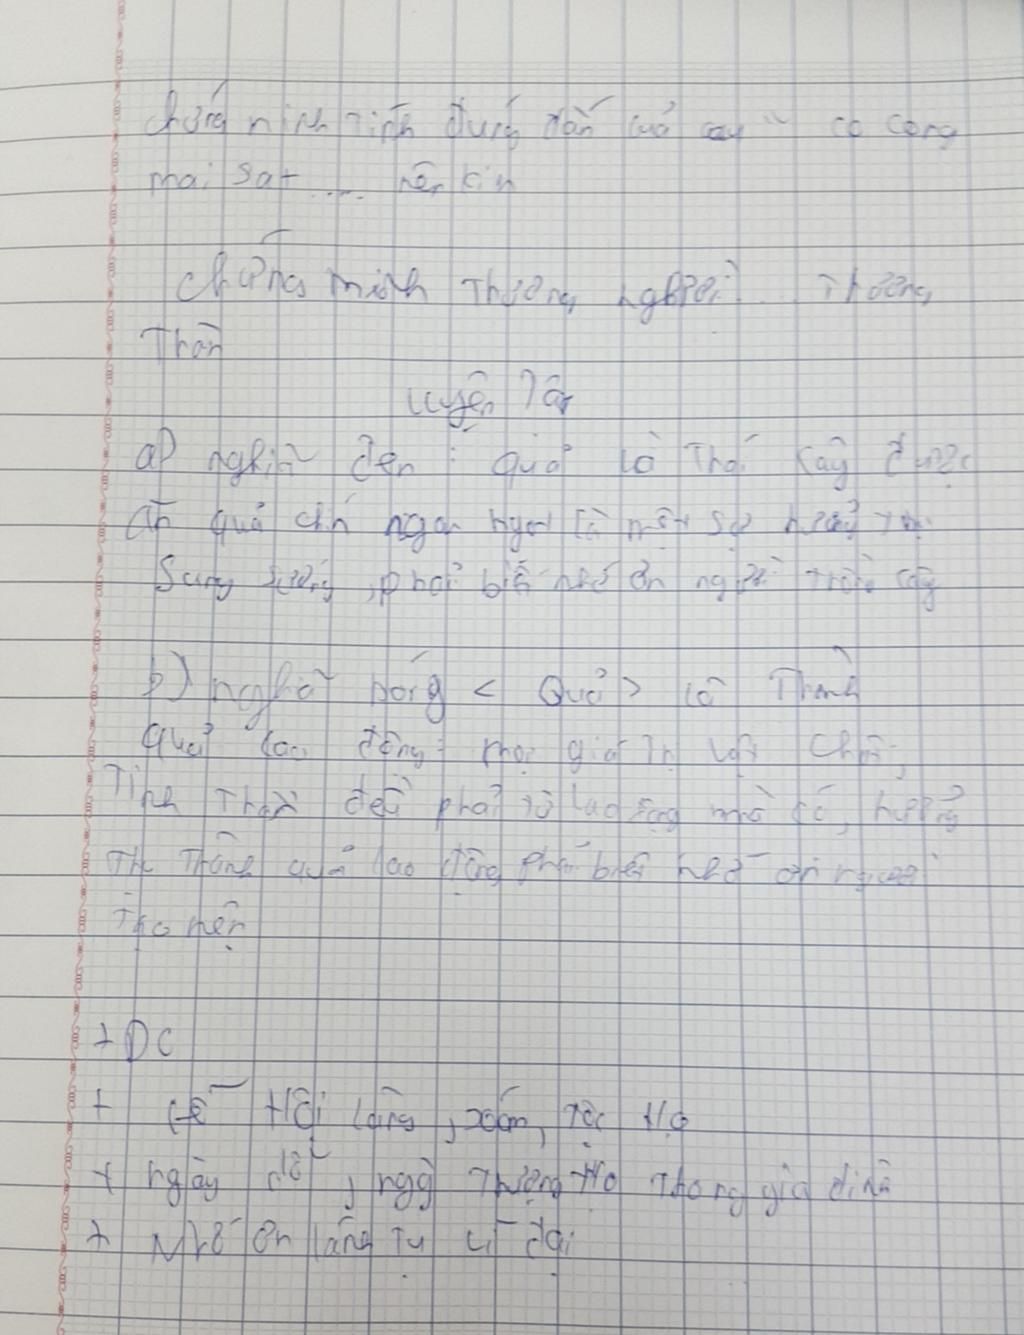 chứng minh tính đúng đắn của câu " có công
mài sắt .... nên kim
chứng minh Thương người ... Thương
Thân
Luyện Tập
a) nghĩa đen : quả là Trái cây được
ăn quả chín ngon ngọt là một sự hưởng thụ
Sung sướng, phải biết nhớ ơn người trồng cây
b) nghĩa bóng < Quả > là Thành
quả lao động: mọi giá trị vật chất,
Tinh Thần đều phải từ lao động mà có, hưởng
Thụ Thành quả lao động phải biết nhớ ơn người
Tạo nên
+ DC
+ Lễ Hội làng, xóm, Tộc Họ
+ ngày lễ, ngày Thượng Thọ Trong gia đình
+ Nhớ ơn lăng Tụ vĩ đại